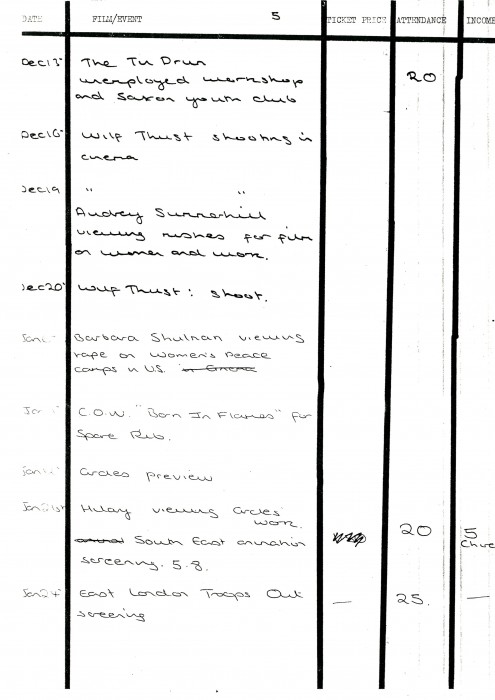 DATE FILM/EVENT 5 TICKET PRICE ATTENDANCE INCOME
Dec13 The Tu Drun
unemployed workshop 20
and Saxon youth club
Dec16 Wilf Thust shooting in
cinema
Dec19 " "
Audrey Summerhill
viewing rushes for film
on women and work.
Dec20 Wilf Thust: shoot.
Jan Barbara Shulman viewing
tape on Women's Peace
camps in U.S.
Jan C.O.W. "Born In Flames" for
Spare Rib.
Jan Circles preview
Jan 21st Hilary viewing Circles
work. 20 5
South East animation
screening. 5-8.
Jan 24 East London Troops Out — 25. —
screening